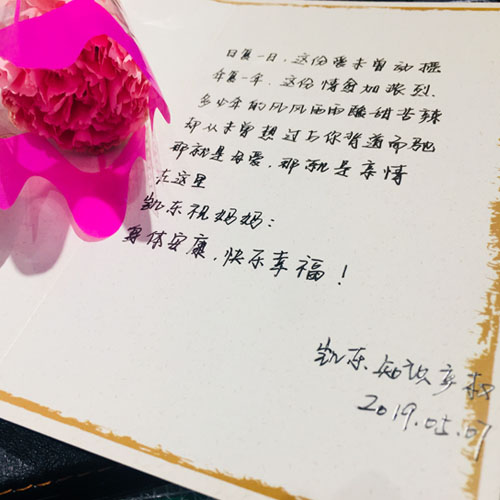 日复一日，这份爱未曾动摇
年复一年，这份情愈加浓烈.
多少年的风风雨雨酸甜苦辣
却从未曾想过与你背道而驰
那就是母爱，那就是亲情
在这里
凯东祝妈妈：
身体安康，快乐幸福！
凯东知识产权
2019.05.07